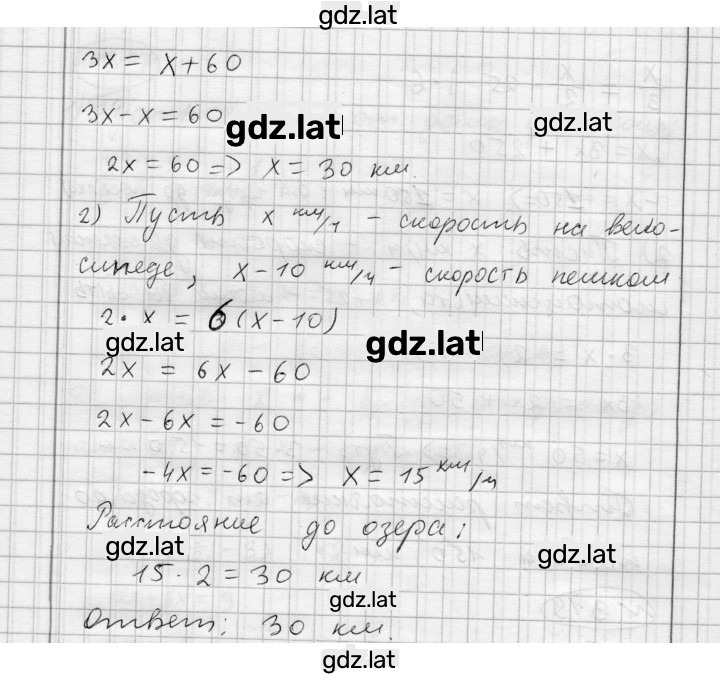 gdz.lat
3x = x+60
3x-x=60
gdz.lat
gdz.lat
2x=60=> x=30 км.
2) Пусть x км/ч - скорость на вело-
сипеде, x-10 км/ч - скорость пешком
2·x = 6(x-10)
gdz.lat
gdz.lat
2x = 6x-60
2x-6x=-60
-4x=-60=> x=15 км/ч
Расстояние до озера:
gdz.lat
gdz.lat
15·2=30 км
gdz.lat
Ответ: 30 км.
gdz.lat